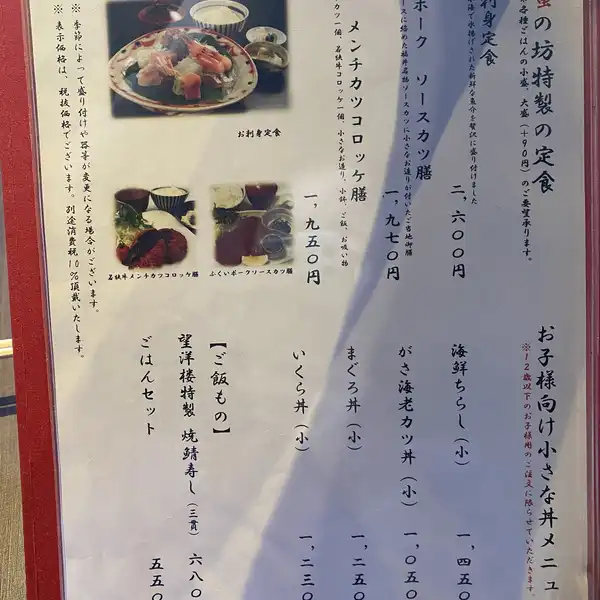 の坊特製の定食
各種ごはんの小盛、大盛（＋90円）のご要望承ります。
お刺身定食
海で水揚げされた新鮮な魚介を贅沢に盛り付けました
二、六〇〇円
ポーク ソースカツ膳
ースに絡めた福井名物ソースカツに小さなお造りが付いたご当地御膳
一、九七〇円
メンチカツコロッケ膳
カツ一個、若狭牛コロッケ一個、小さなお造り、小鉢、ご飯、お吸い物
一、九五〇円
お刺身定食
ふくいポークソースカツ膳
若狭牛メンチカツコロッケ膳
※ 季節によって盛り付けや器等が変更になる場合がございます。
※ 表示価格は、税抜価格でございます。別途消費税10％頂戴いたします。
お子様向け小さな丼メニュ
※12歳以下のお子様用のご注文に限らせていただきます。
海鮮ちらし（小） 一、四五〇
がさ海老カツ丼（小） 一、〇五〇
まぐろ丼（小） 一、二五〇
いくら丼（小） 一、二三〇
【ご飯もの】
望洋楼特製 焼鯖寿し（三貫） 六八〇
ごはんセット 五五〇